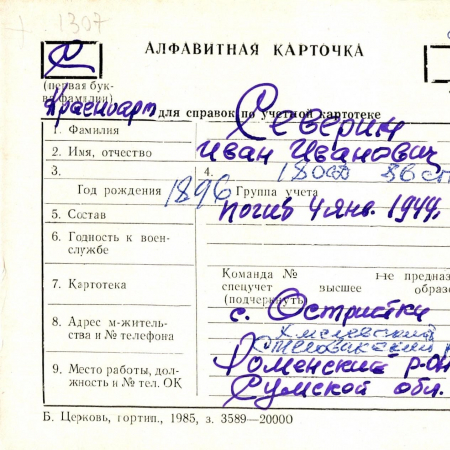 1307
АЛФАВИТНАЯ КАРТОЧКА
С
(первая бук-
ва фамилии)
Красноарм для справок по учетной картотеке
1. Фамилия Северин
2. Имя, отчество Иван Иванович
3. Год рождения 1896
4. Группа учета
5. Состав погиб 4 янв. 1944.
6. Годность к воен-
службе
7. Картотека
Команда № не предназ
спецучет высшее образо
(подчеркнуть)
8. Адрес м-житель-
ства и № телефона
9. Место работы, дол-
жность и № тел. ОК
Роменский р-он
Сумской обл.
Б. Церковь, гортип., 1985, з. 3589—20000